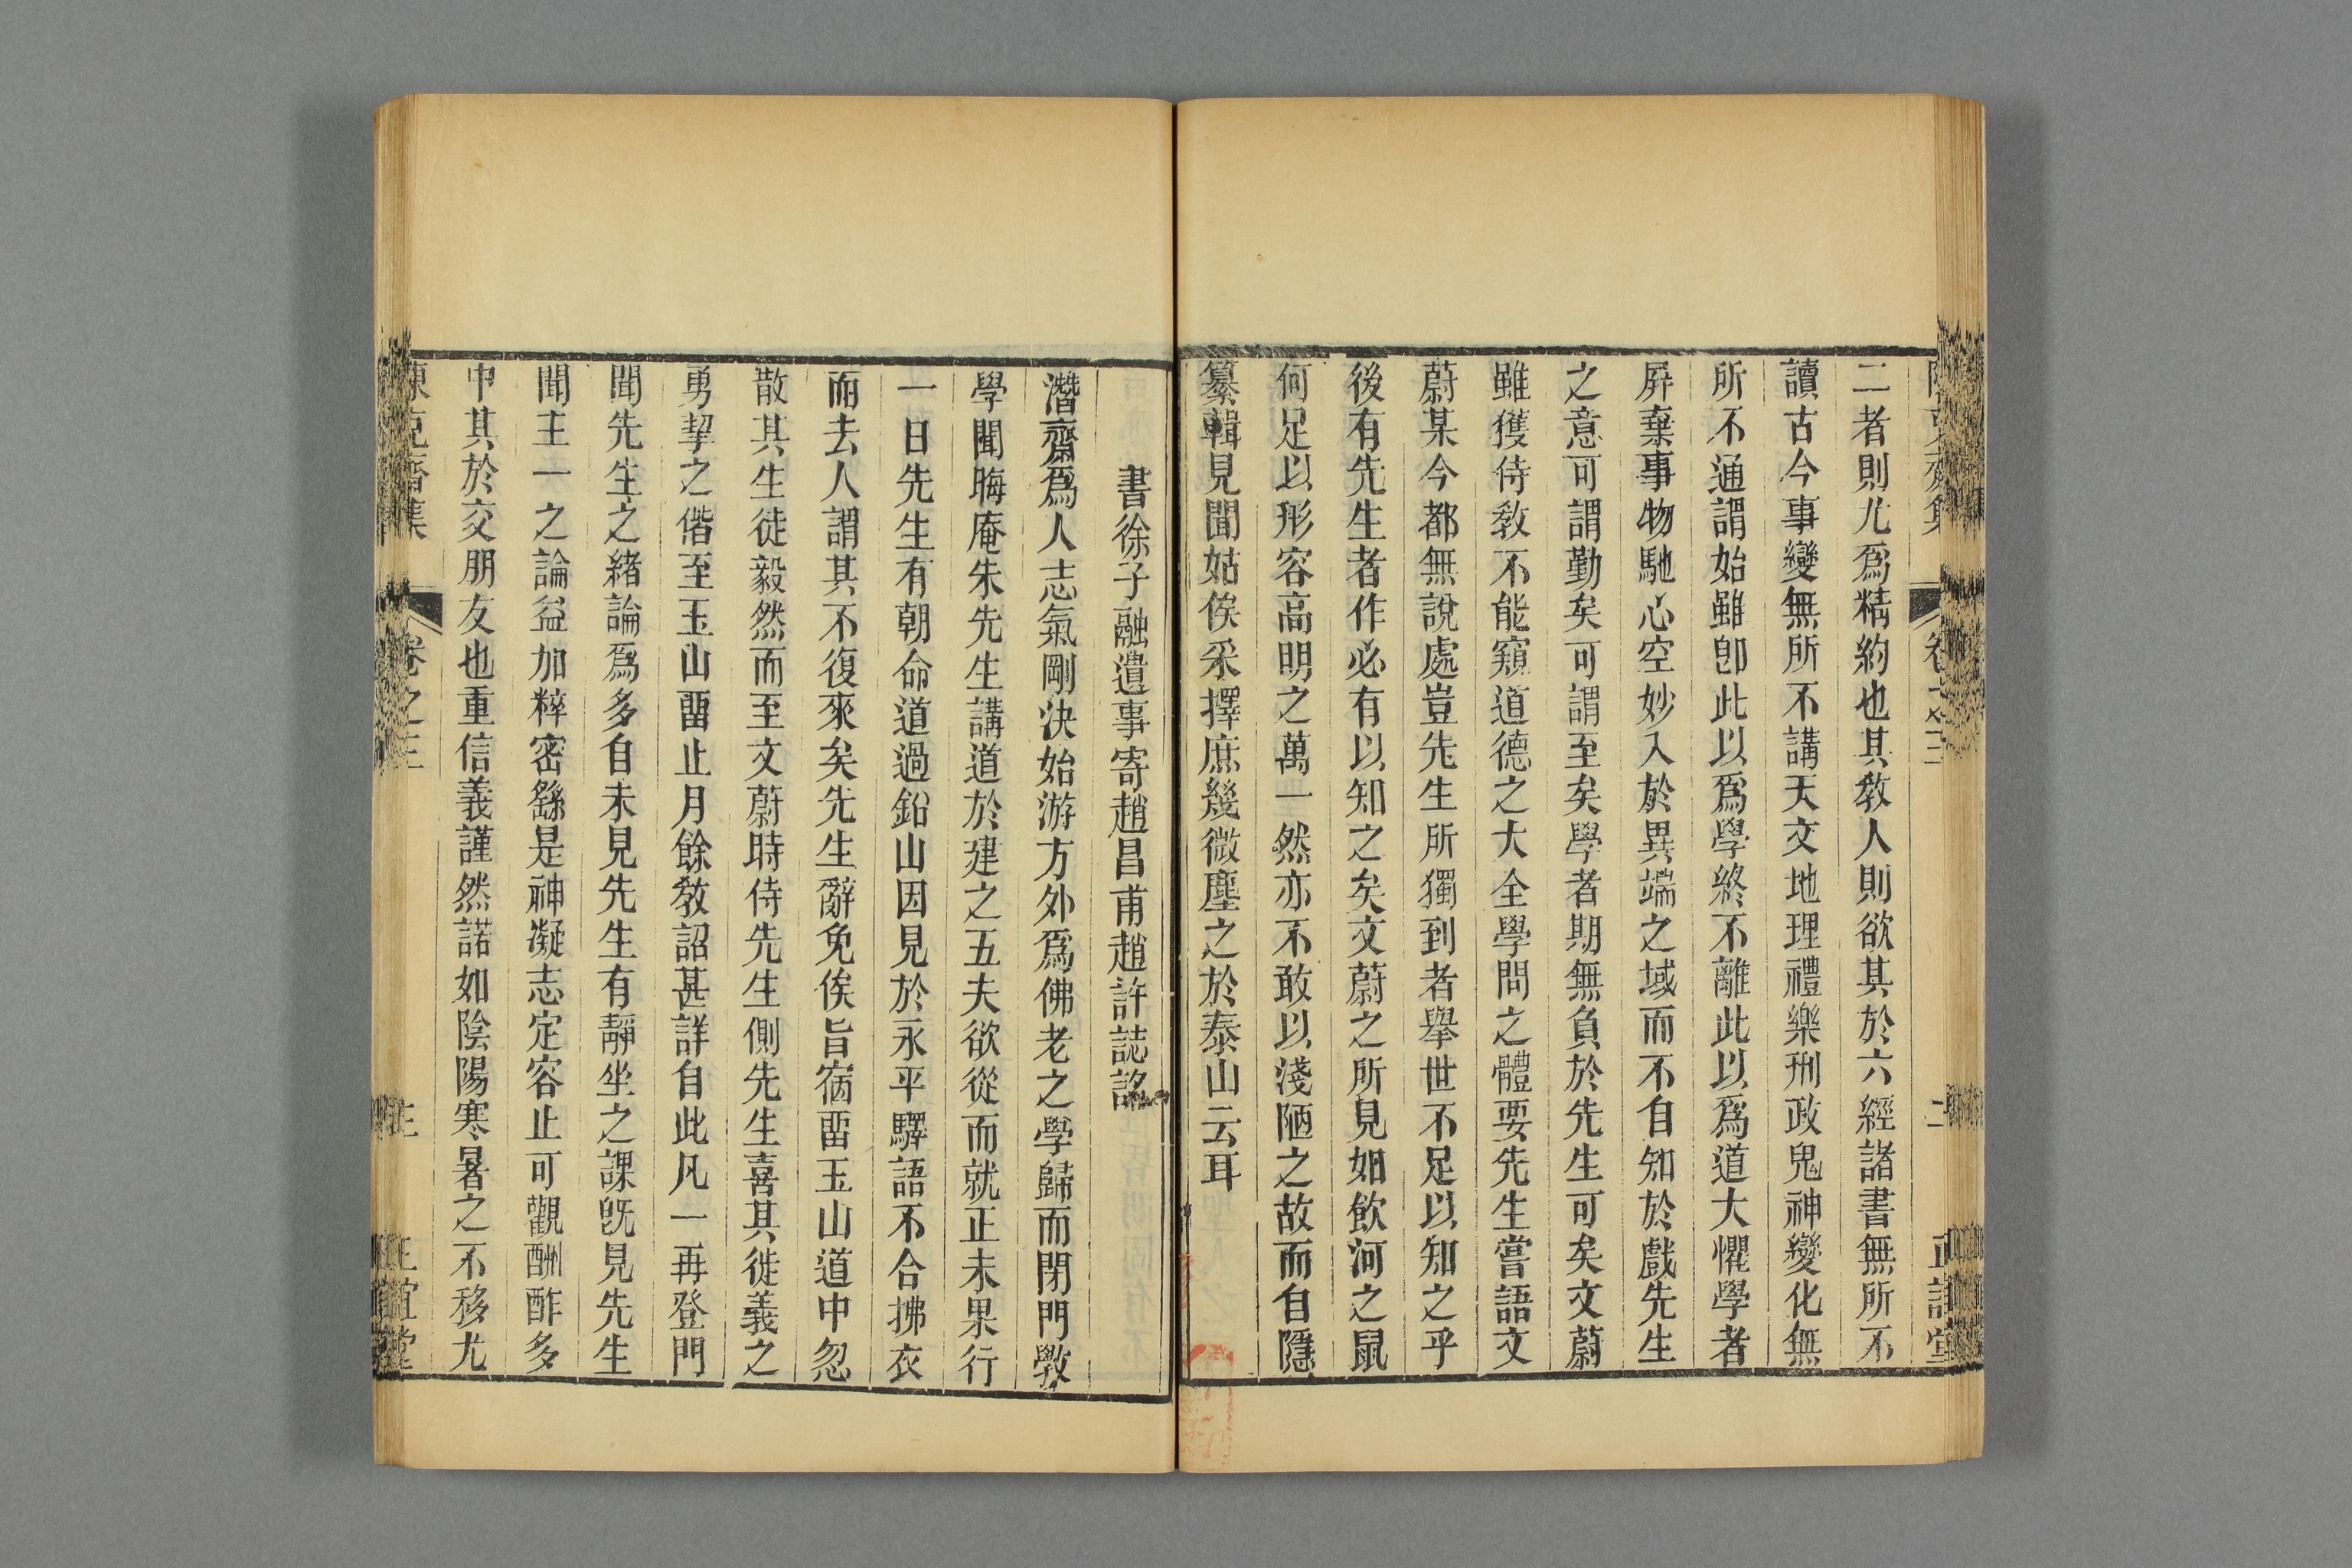 二者則尤爲精約也其敎人則欲其於六經諸書無所不
讀古今事變無所不講天文地理禮樂刑政鬼神變化無
所不通謂始雖卽此以爲學終不離此以爲道大懼學者
屏棄事物馳心空妙入於異端之域而不自知於戲先生
之意可謂勤矣可謂至矣學者期無負於先生可矣文蔚
雖獲侍敎不能窺道德之大全學問之體要先生嘗語文
蔚某今都無說處豈先生所獨到者舉世不足以知之乎
後有先生者作必有以知之矣文蔚之所見如飮河之鼠
何足以形容高明之萬一然亦不敢以淺陋之故而自隱
纂輯見聞姑俟采擇庶幾微塵之於泰山云耳
書徐子融遺事寄趙昌甫趙許誌銘
濳齋爲人志氣剛決始游方外爲佛老之學歸而閉門敎
學聞晦庵朱先生講道於建之五夫欲從而就正未果行
一日先生有朝命道過鉛山因見於永平驛語不合拂衣
而去人謂其不復來矣先生辭免俟旨宿畱玉山道中忽
散其生徒毅然而至文蔚時侍先生側先生喜其徙義之
勇挈之偕至玉山畱止月餘敎詔甚詳自此凡一再登門
聞先生之緖論爲多自未見先生有靜坐之課旣見先生
聞主一之論益加粹密繇是神凝志定容止可觀酬酢多
中其於交朋友也重信義謹然諾如陰陽寒暑之不移尤
陳克齋集
卷之三
正誼堂